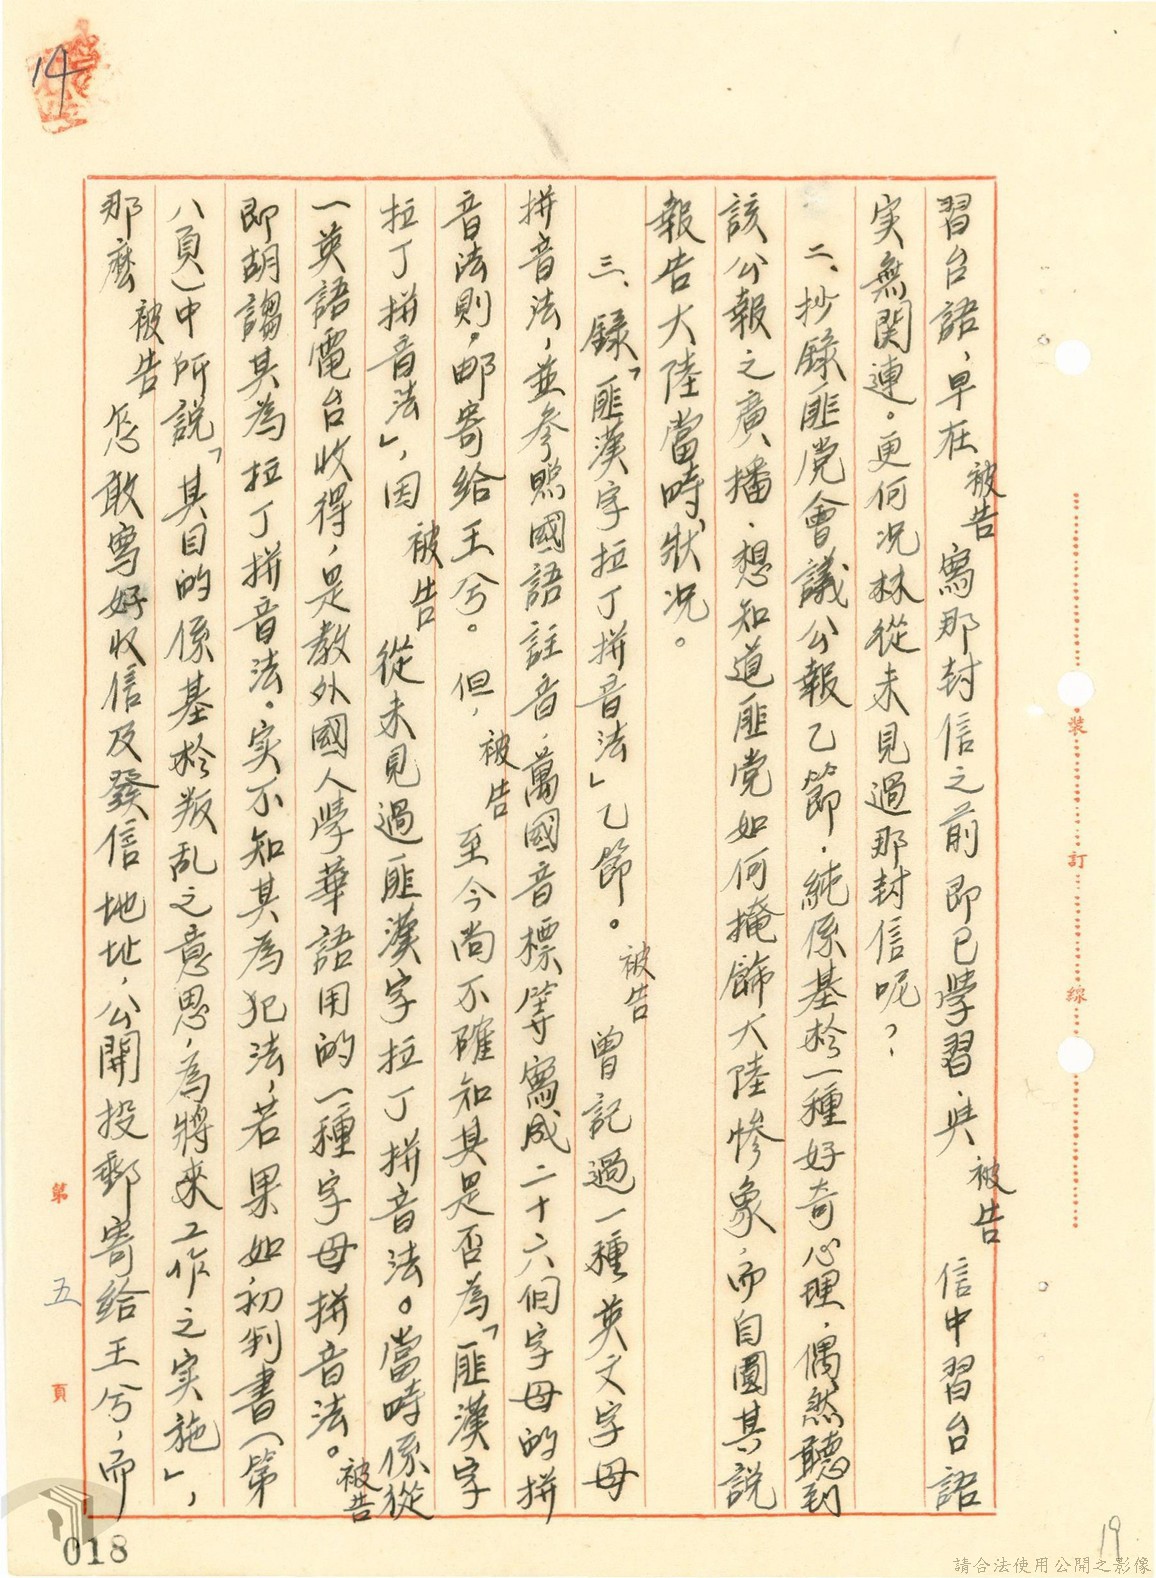 14
習台語，早在被告寫那封信之前即已學習，與被告信中習台語
实無関連。更何况林從未見過那封信呢？
二、抄錄匪党會議公報乙節，純係基於一種好奇心理，偶然聽到
該公報之廣播，想知道匪党如何掩飾大陸慘象，而自圓其說
報告大陸當時狀况。
三、錄「匪漢字拉丁拼音法」乙節。被告曾記過一種英文字母
拼音法，並參照國語註音，萬國音標等寫成二十六個字母的拼
音法則，郵寄給王兮。但，被告至今尚不確知其是否為「匪漢字
拉丁拼音法」，因被告從未見過匪漢字拉丁拼音法。當時係從
一英語電台收得，是教外國人學華語用的一種字母拼音法。被告
即胡謅其為拉丁拼音法。实不知其為犯法，若果如初判書（第
八頁）中所說「其目的係基於叛乱之意思，為將來工作之実施」，
那麽被告怎敢寫好收信及發信地址，公開投郵寄給王兮，而
第五頁
裝訂線
018
19
請合法使用公開之影像